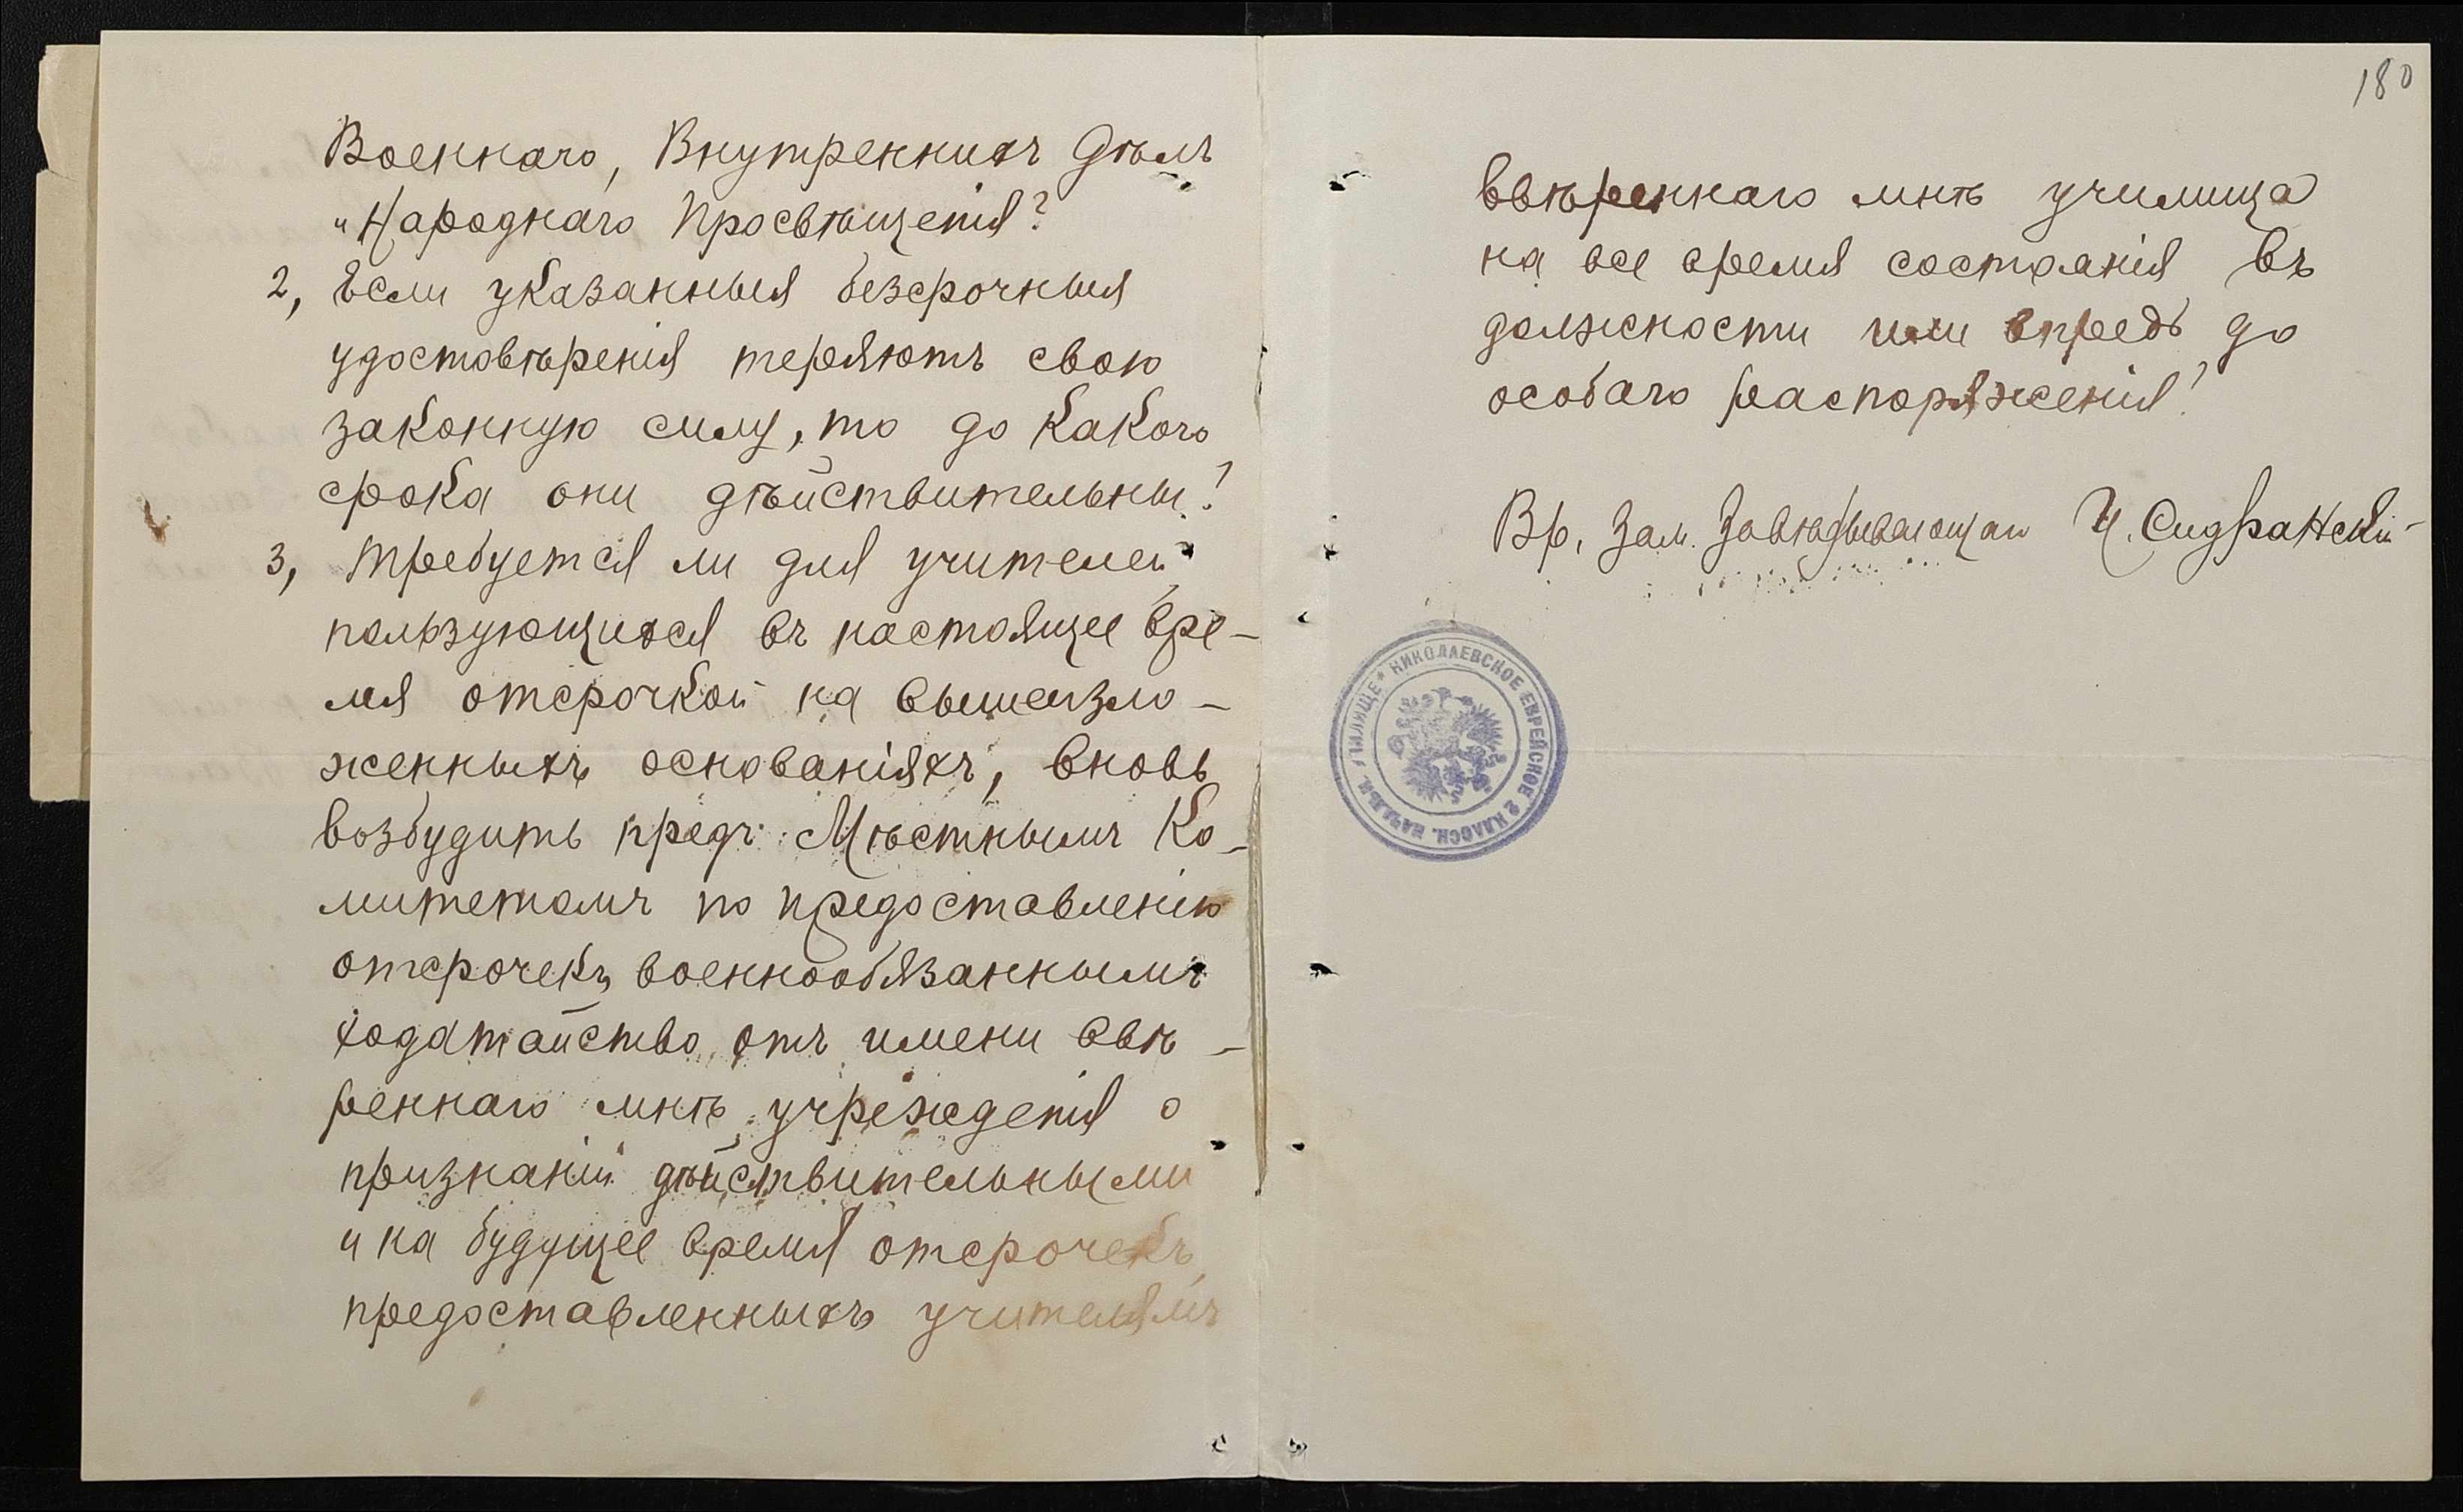 Военнаго, Внутреннихъ Дѣлъ
и Народнаго Просвѣщенія?
2, Если указанныя безсрочныя
удостовѣренія теряютъ свою
законную силу, то до какого
срока они дѣйствительны?
3, Требуется ли для учителей
пользующихся въ настоящее вре-
мя отсрочкой на вышеизло-
женныхъ основаніяхъ, вновь
возбудить предъ Мѣстнымъ Ко-
митетомъ по предоставленію
отсрочекъ военнообязаннымъ
ходатайство отъ имени ввѣ-
реннаго мнѣ учрежденія о
признаніи дѣйствительными
и на будущее время отсрочекъ
предоставленныхъ учителямъ
180
ввѣреннаго мнѣ училища
на все время состоянія въ
должности или впредь до
особаго распоряженія?
Вр. Зам. Завѣдывающаго
НИКОЛАЕВСКОЕ ЕВРЕЙСКОЕ 2 КЛАССН. НАЧАЛЬН. УЧИЛИЩЕ *